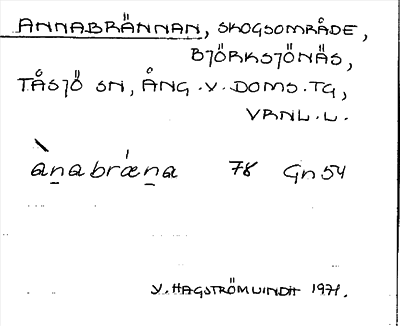 ANNABRÄNNAN, SKOGSOMRÅDE,
BJÖRKSJÖNÄS,
TÅSJÖ SN, ÅNG.V.DOMS.TG,
VRNL.L.
àṉabrǽṉa 78 Gn54
Y. HAGSTRÖM 1971.